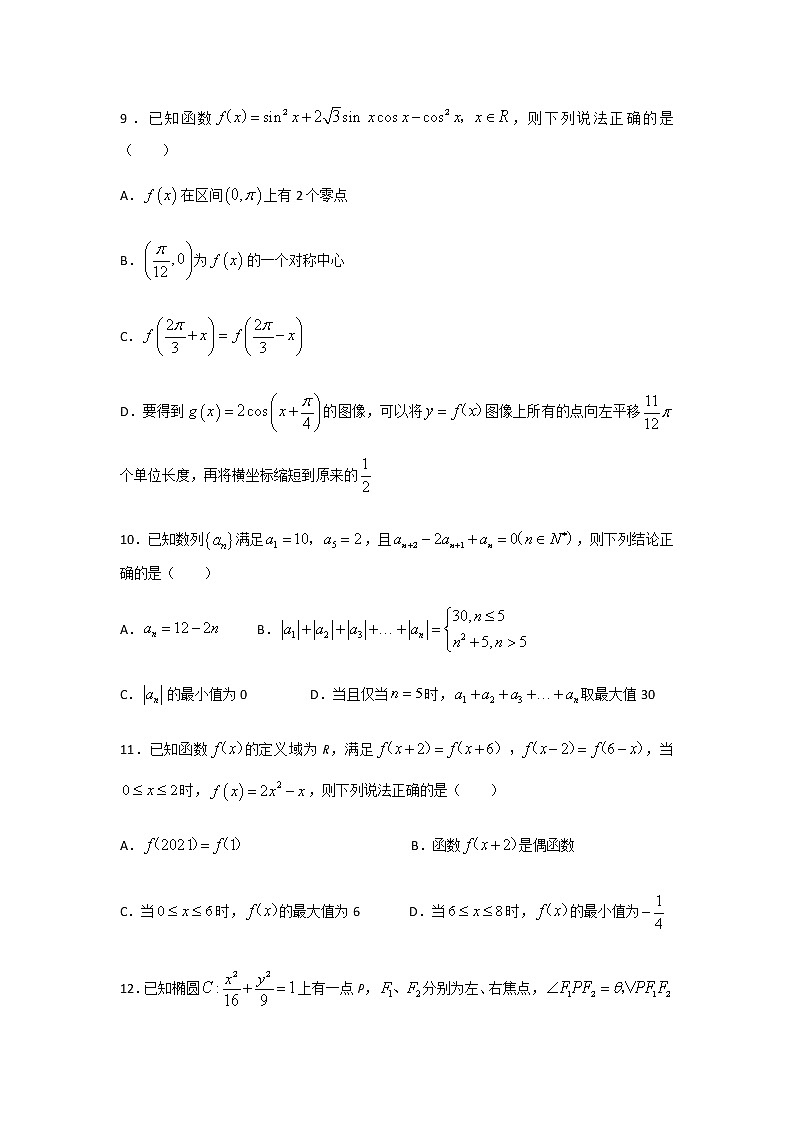 9．已知函数 f(x)=sin² x+2√3sin xcos x−cos² x，x∈R，则下列说法正确的是
（　　）
A．f(x)在区间(0,π)上有 2 个零点
B．(π/12,0)为 f(x) 的一个对称中心
C．f(2π/3+x)=f(2π/3−x)
D．要得到 g(x)=2cos(x+π/4)的图像，可以将 y=f(x)图像上所有的点向左平移 11/12 π
个单位长度，再将横坐标缩短到原来的 1/2
10．已知数列{aₙ}满足 a₁=10，a₅=2，且 aₙ₊₂−2aₙ₊₁+aₙ=0(n∈N*)，则下列结论正
确的是（　　）
A．aₙ=12−2n　　B．|a₁|+|a₂|+|a₃|+…+|aₙ|={30,n≤5 n²+5,n>5
C．|aₙ| 的最小值为 0　　D．当且仅当 n=5时，a₁+a₂+a₃+…+aₙ取最大值 30
11．已知函数 f(x)的定义域为 R，满足 f(x+2)=f(x+6)，f(x−2)=f(6−x)，当
0≤x≤2时，f(x)=2x²−x，则下列说法正确的是（　　）
A．f(2021)=f(1)　　B．函数 f(x+2)是偶函数
C．当 0≤x≤6时，f(x)的最大值为 6　　D．当 6≤x≤8时，f(x)的最小值为−1/4
12．已知椭圆 C:x²/16+y²/9=1上有一点 P，F₁、F₂分别为左、右焦点，∠F₁PF₂=θ,∨PF₁F₂